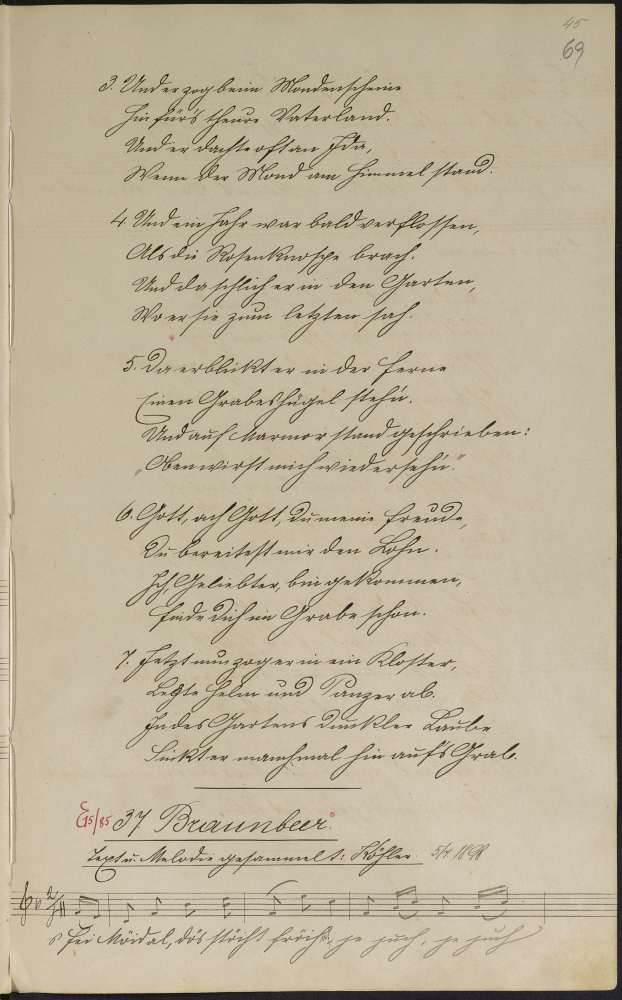 45
69
3. Und er zog beim Mondenscheine
Hin für's theure Vaterland.
Und er dachte oft an Ida,
Wenn der Mond am Himmel stand.
4. Und ein Jahr war bald verflossen,
Als die Rosenknospe brach.
Und da schlich er in den Garten,
Wo er sie zum letzten sah.
5. Da erblickt er in der Ferne
Einen Grabeshügel steh'n.
Und auf Marmor stand geschrieben:
„Oben wirst mich wiederseh'n."
6. Gott, ach Gott, Du meine Freude,
Du bereitest mir den Lohn.
Ich, Geliebter, bin gekommen,
Finde Dich im Grabe schon.
7. Jetzt nun zog er in ein Kloster,
Legte Helm und Panzer ab.
In des Gartens dunkler Laube
Sinkt er manchmal hin auf's Grab.
E 15/85 37 Braunbeer.
Text u. Melodie gesammelt: Köhler.
s Hei Moidal, dös stöcht fröih, je juch, je juch